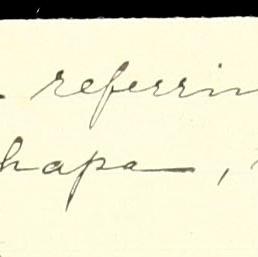 referrin
hapa,